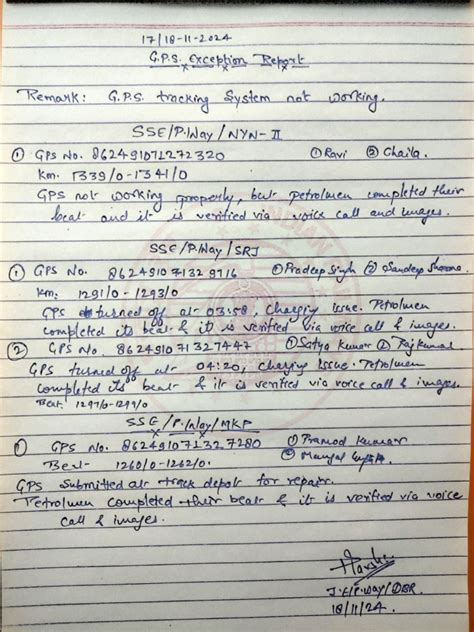 17/18-11-2024
G.P.S. Exception Report
Remark: G.P.S. tracking System not working.
SSE/P.Way/NYN-II
① GPS No. 862491071272320 ① Ravi ② Chaila.
Km. 1339/0-1341/0
GPS not working properly, but petrolmen completed their
beat and it is verified via voice call and images.
SSE/P.Way/SRJ
① GPS No. 862491071329716 ① Pradeep Singh ② Sandeep Sharma
Km: 1291/0-1293/0
GPS turned off at 03:58, Charging issue. Petrolmen
completed its beat & it is verified via voice call & images.
② GPS No. 862491071327447 ① Satya Kumar ② Rajkumar
GPS turned off at 04:20, charging issue. Petrolmen
completed its beat & it is verified via voice call & images.
Beat. 1297/0-1299/0
SSE/P.Way/MKP
① GPS No. 862491071327280 ① Pramod Kumar
Beat- 1260/0-1262/0. ② Mangal
GPS Submitted at track depot for repair.
Petrolmen completed their beat & it is verified via voice
call & images.
J.E/P.Way/
18/11/24.